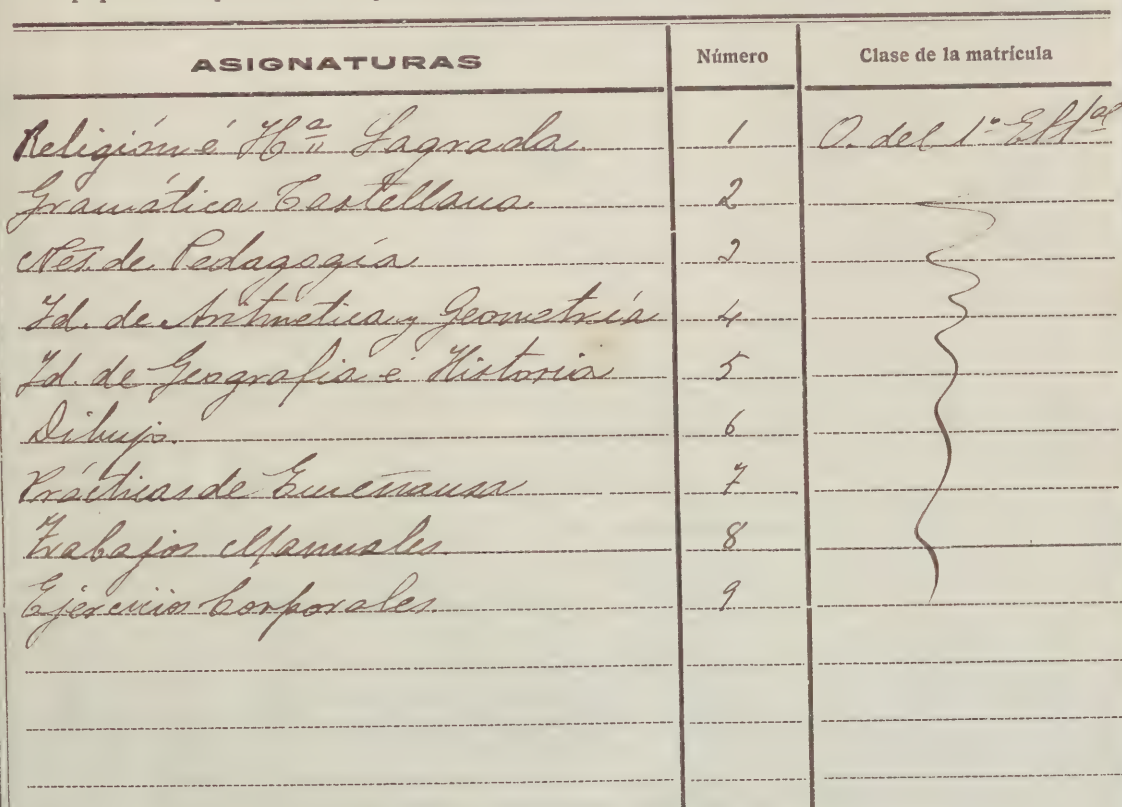 ASIGNATURAS Número Clase de la matrícula
Religión é H.ª Sagrada 1 O. del 1º
Gramática Castellana 2
Nes. de Pedagogía 2
Id. de Aritmética y Geometría 4
Id. de Geografia é Historia 5
Dibujo. 6
Prácticas de Enseñansa 7
Trabajos Manuales 8
Ejercicios Corporales. 9